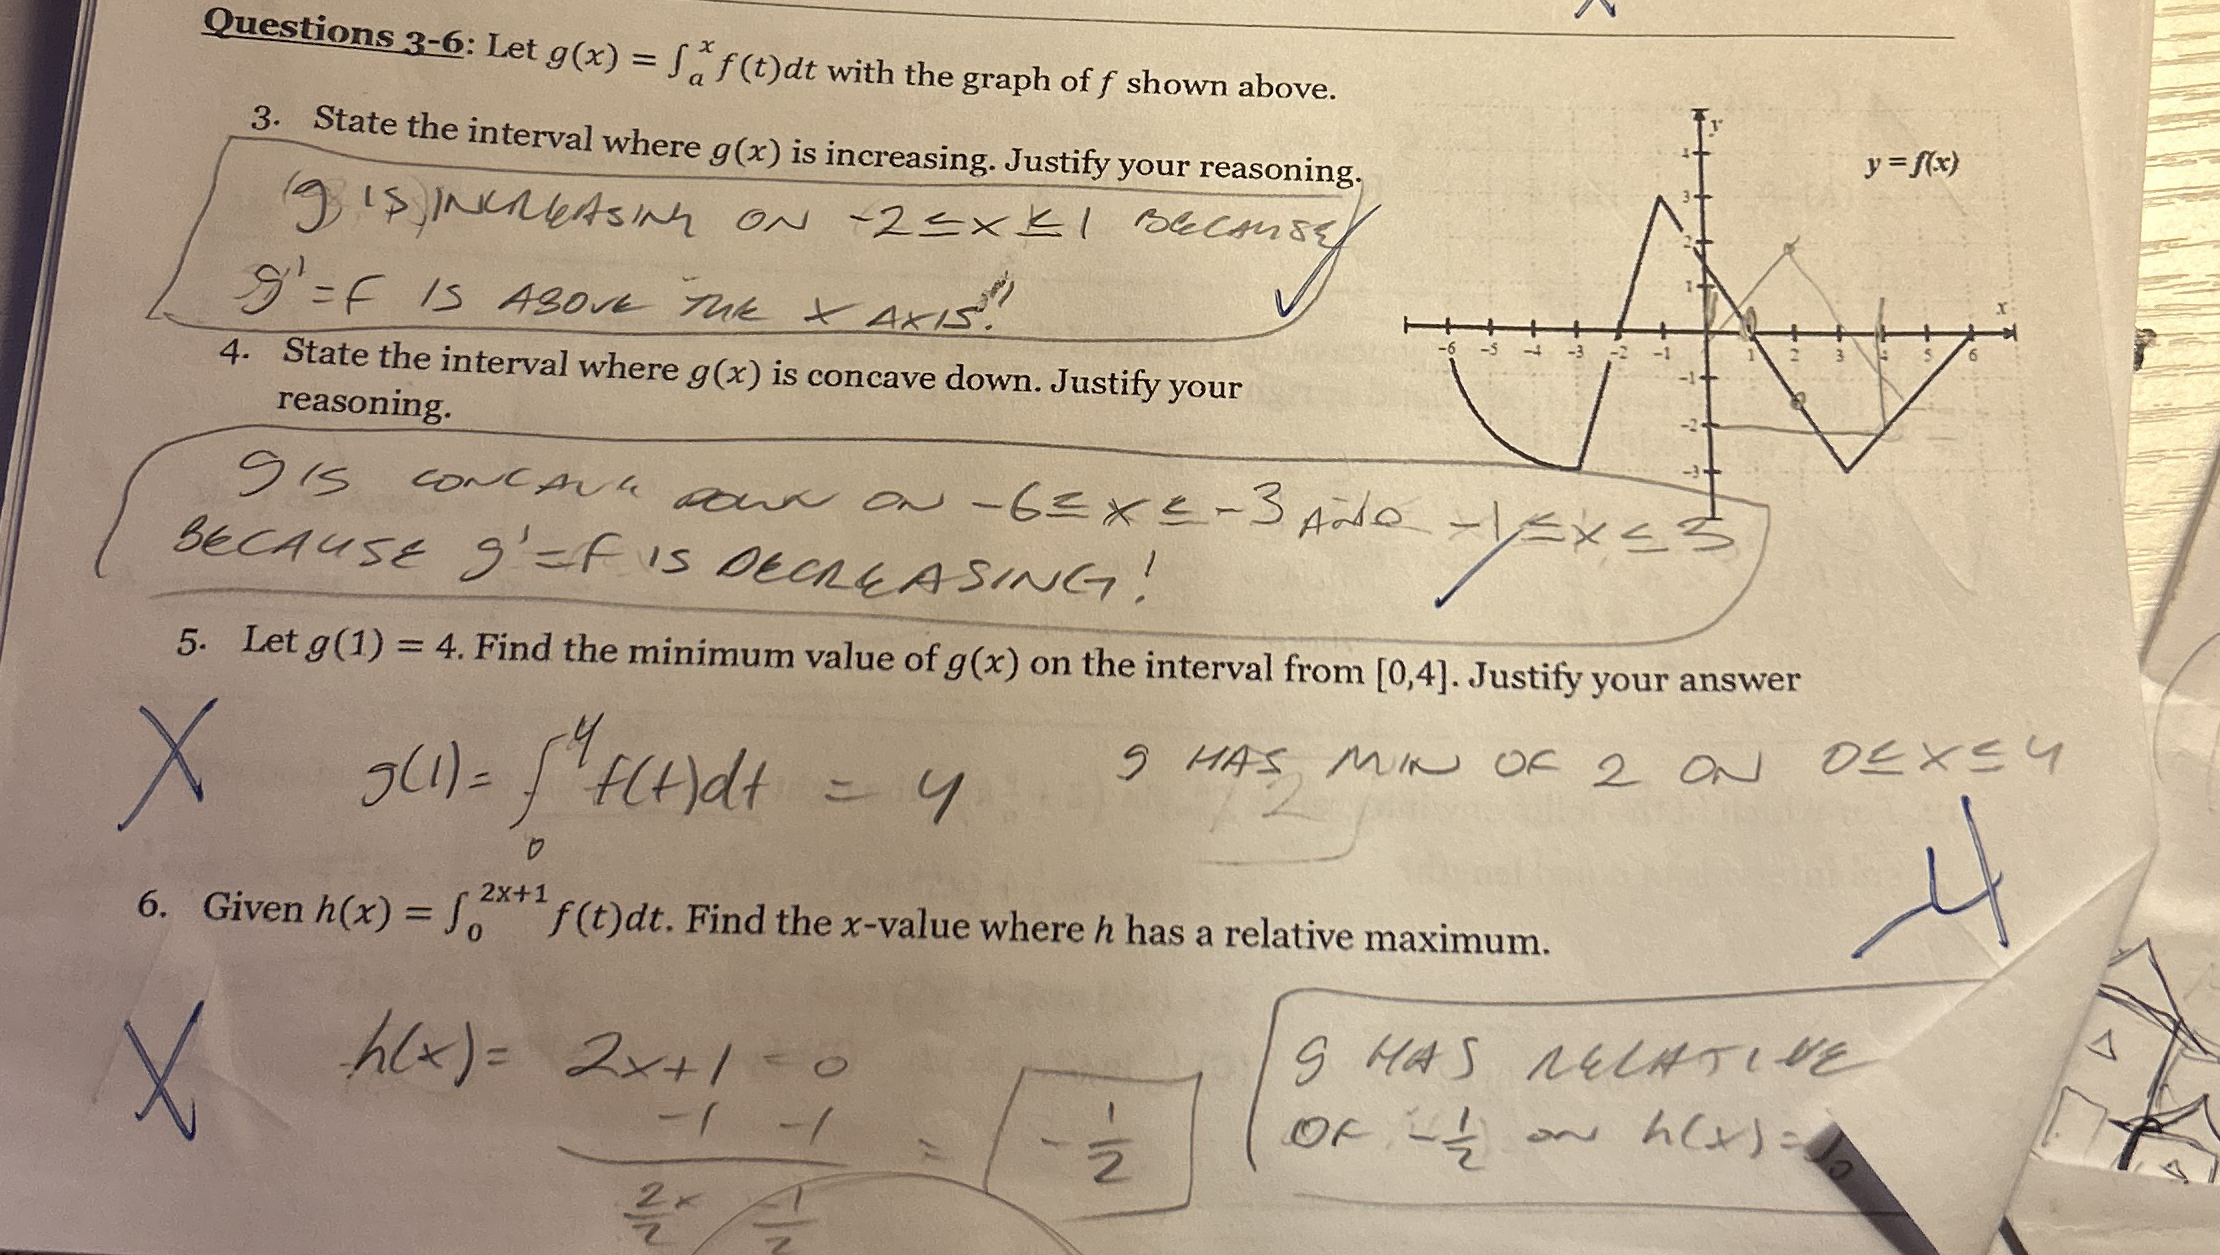 Questions 3-6: Let g(x) = ∫ₐˣ f(t)dt with the graph of f shown above.
3. State the interval where g(x) is increasing. Justify your reasoning.
g IS INCREASING ON -2 ≤ x ≤ 1 BECAUSE
g' = f IS ABOVE THE X AXIS!
y
y = f(x)
x
4
3
2
1
-6 -5 -4 -3 -2 -1 1 2 3 4 5 6
-1
-2
-3
4. State the interval where g(x) is concave down. Justify your
reasoning.
g IS CONCAVE DOWN ON -6 ≤ x ≤ -3 AND -1 ≤ x ≤ 3
BECAUSE g' = f IS DECREASING!
5. Let g(1) = 4. Find the minimum value of g(x) on the interval from [0,4]. Justify your answer
X
g(1) = ∫₀⁴ f(t)dt = 4
g HAS MIN OF 2 ON 0 ≤ x ≤ 4
2
-4
6. Given h(x) = ∫₀²ˣ⁺¹ f(t)dt. Find the x-value where h has a relative maximum.
X
h(x) = 2x+1 = 0
-1 -1
2x/2 -1/2
= -1/2
g HAS RELATIVE
OF -1/2 on h(x) =